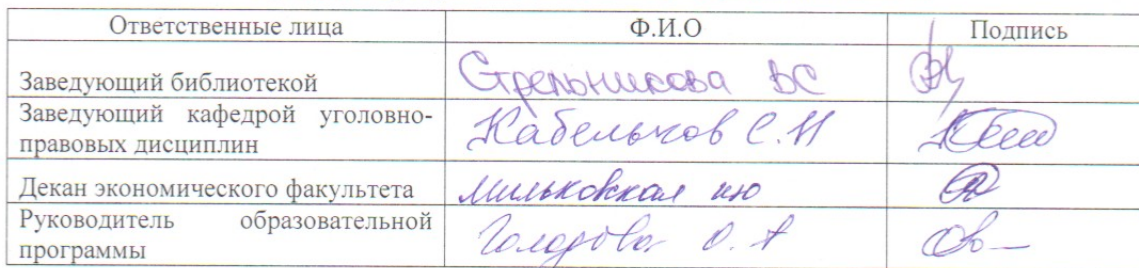 Ответственные лица Ф.И.О Подпись
Заведующий библиотекой Стрельникова ВС
Заведующий кафедрой уголовно-
правовых дисциплин Кабельков С.Н
Декан экономического факультета Мильковская ию
Руководитель образовательной
программы О.А